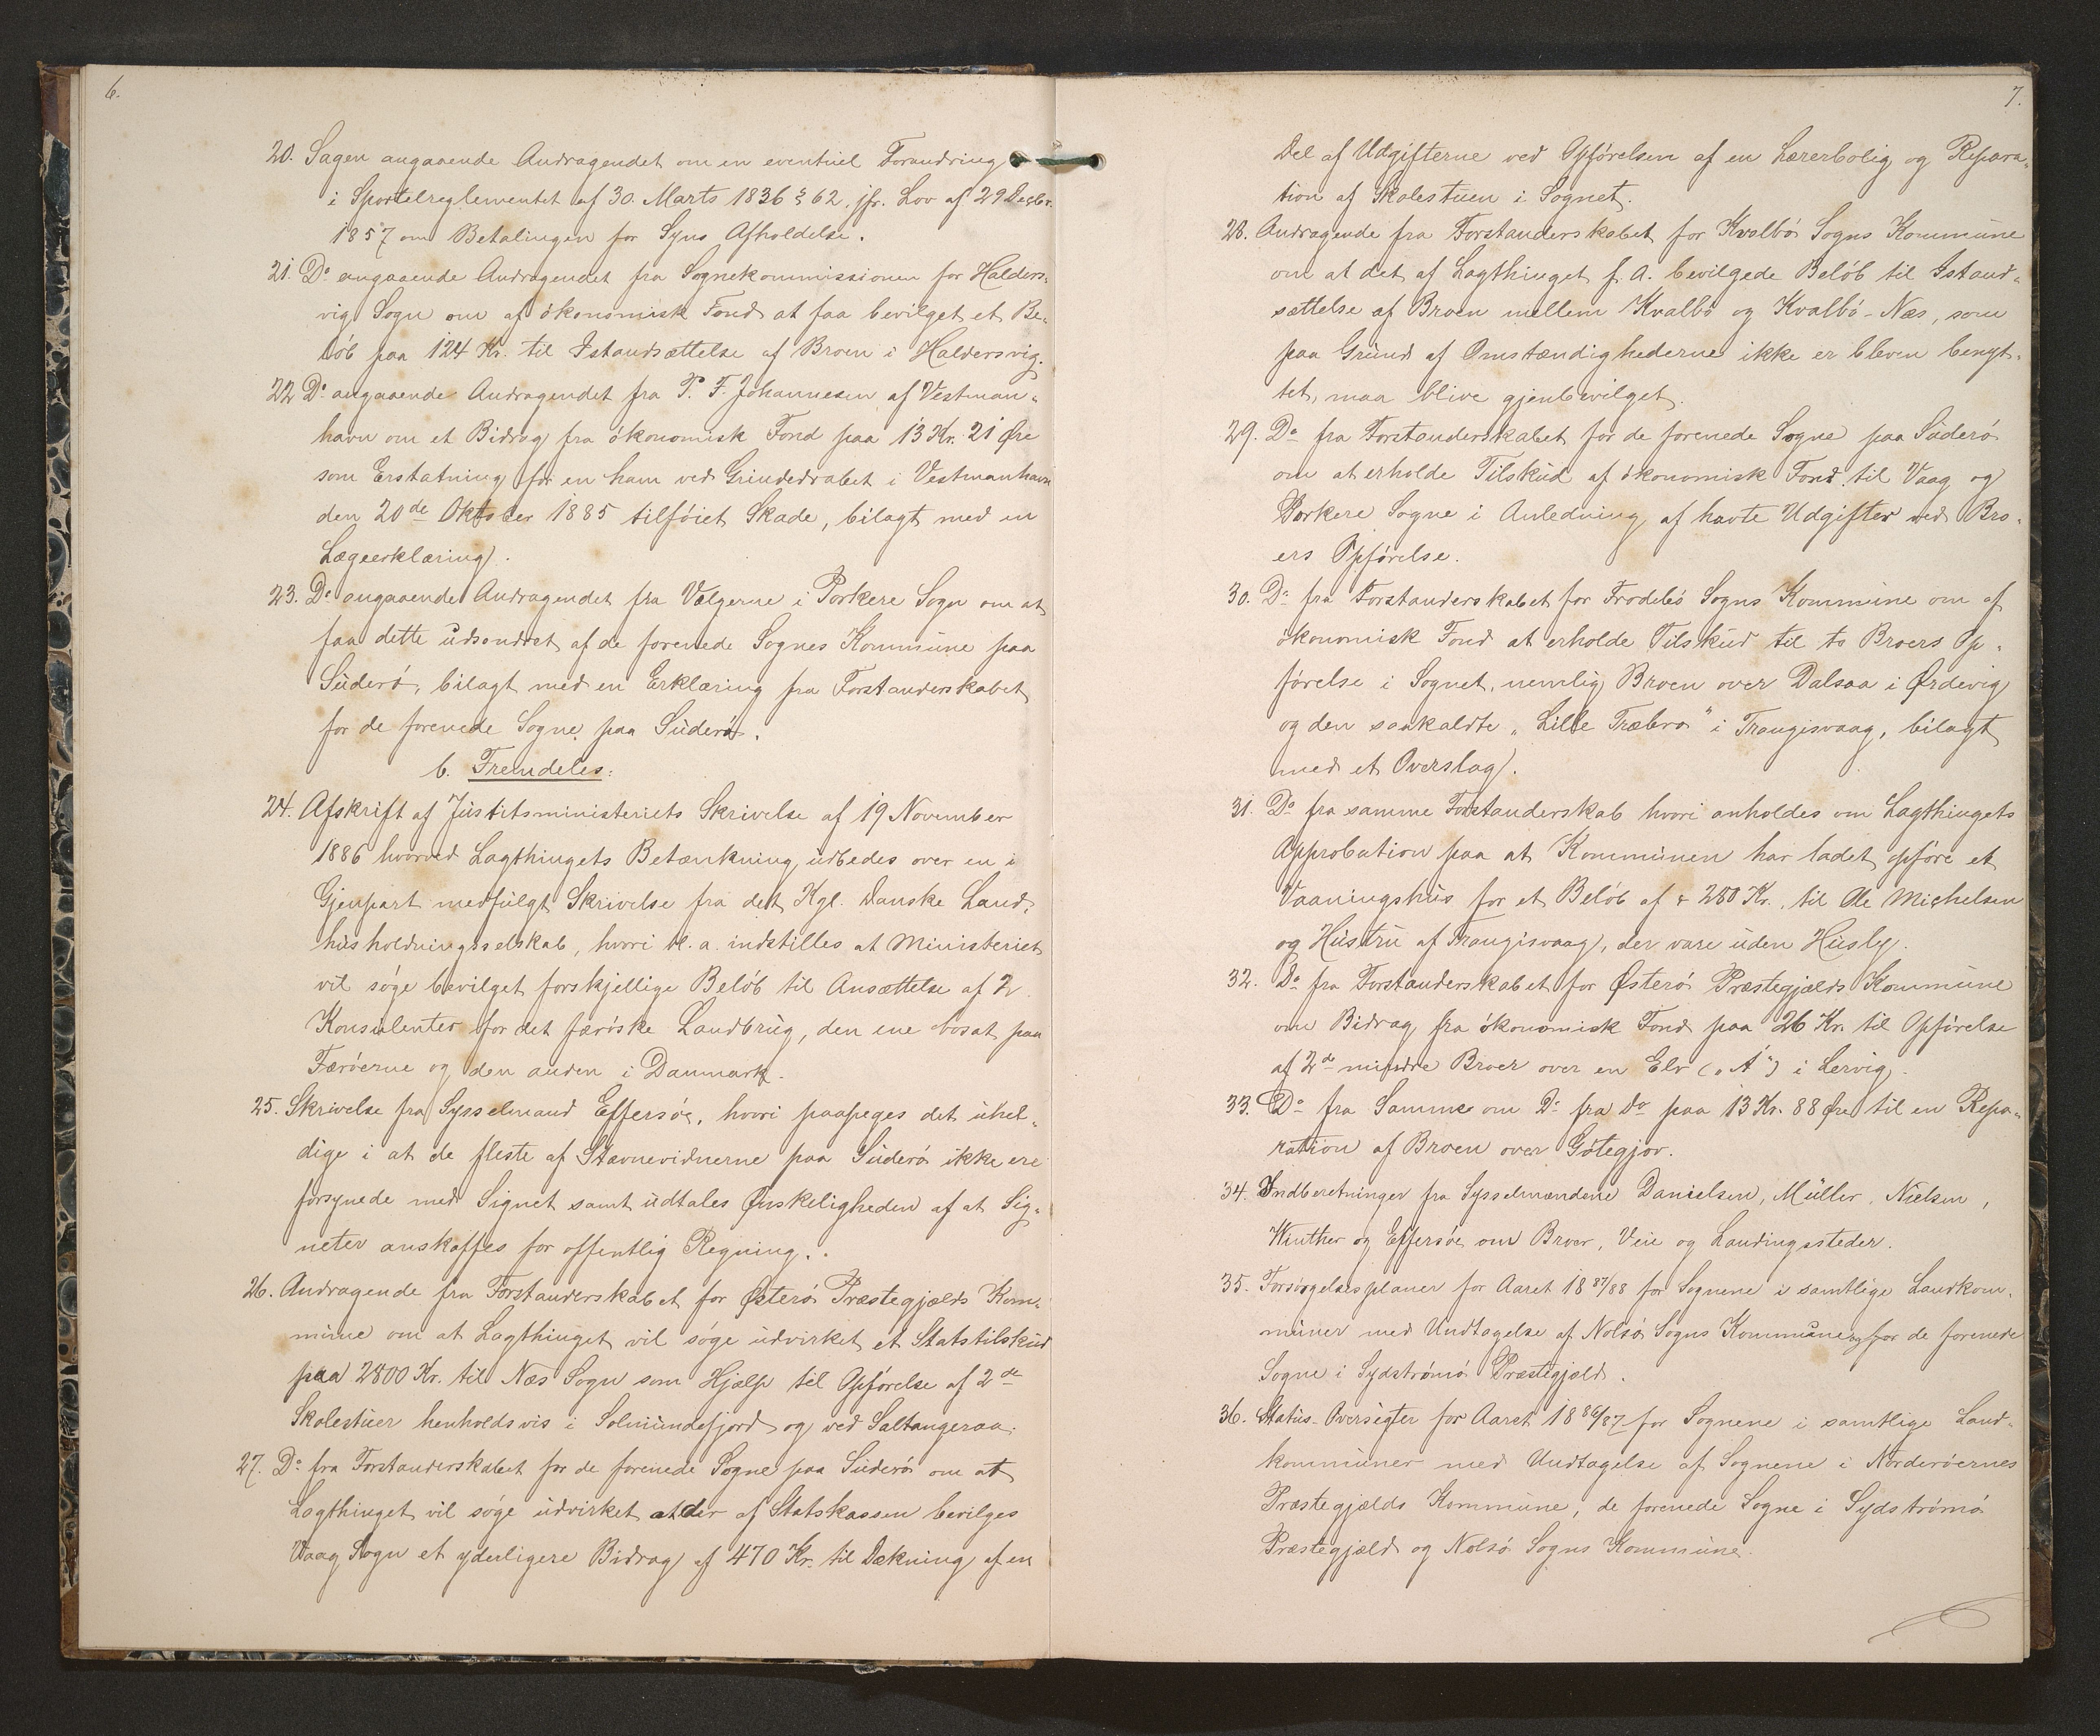 6.
20. Sagen angaaende Andragendet om en eventuel Forandring
i Sportelreglementet af 30. Marts 1836 § 62, jfr. Lov af 29 Decbr.
1857 om Betalingen for Syns Afholdelse.
21. Do angaaende Andragendet fra Sognekommissionen for Halders-
vig Sogn om af økonomisk Fond at faa bevilget et Be-
løb paa 124 Kr. til Istandsættelse af Broen i Haldersvig.
22 Do angaaende Andragendet fra P. F. Johannesen af Vestman-
havn om et Bidrag fra økonomisk Fond paa 13 Kr. 21 Øre
som Erstatning for en ham ved Grindedrabet i Vestmanhavn
den 20de Oktober 1885 tilføiet Skade, bilagt med en
Lægeerklæring.
23. Do angaaende Andragendet fra Vælgerne i Porkere Sogn om at
faa dette udsondret af de forenede Sognes Kommune paa
Suderø, bilagt med en Erklæring fra Forstanderskabet
for de forenede Sogne paa Suderø.
b. Fremdeles:
24. Afskrift af Justitsministeriets Skrivelse af 19 November
1886 hvorved Lagthingets Betænkning udbedes over en i
Gjenpart medfulgt Skrivelse fra det Kgl. Danske Land-
husholdningsselskab, hvori bl. a. indstilles at Ministeriet
vil søge bevilget forskjellige Beløb til Ansættelse af 2
Konsulenter for det færøske Landbrug, den ene bosat paa
Færøerne og den anden i Danmark.
25. Skrivelse fra Sysselmand Effersøe, hvori paapeges det uhel-
dige i at de fleste af Stævnevidnerne paa Suderø ikke ere
forsynede med Signet samt udtales Ønskeligheden af at Sig-
neter anskaffes for offentlig Regning.
26. Andragende fra Forstanderskabet for Østerø Præstegjælds Kom-
mune om at Lagthinget vil søge udvirket et Statstilskud
paa 2800 Kr. til Næs Sogn som Hjælp til Opførelse af 2de
Skolestuer henholdsvis i Solmundefjord og ved Saltangeraa.
27. Do fra Forstanderskabet for de forenede Sogne paa Suderø om at
Lagthinget vil søge udvirket at der af Statskassen bevilges
Vaag Sogn et yderligere Bidrag af 470 Kr. til Dækning af en
7.
Del af Udgifterne ved Opførelsen af en Lærerbolig og Repara-
tion af Skolestuen i Sognet.
28. Andragende fra Forstanderskabet for Kvalbø Sogns Kommune
om at det af Lagthinget f. A. bevilgede Beløb til Istand-
sættelse af Broen mellem Kvalbø og Kvalbø-Næs, som
paa Grund af Omstændighederne ikke er bleven benyt-
tet, maa blive gjenbevilget.
29. Do fra Forstanderskabet for de forenede Sogne paa Suderø
om at erholde Tilskud af økonomisk Fond til Vaag og
Porkere Sogne i Anledning af havte Udgifter ved Bro-
ers Opførelse.
30. Do fra Forstanderskabet for Frodebø Sogns Kommune om af
økonomisk Fond at erholde Tilskud til to Broers Op-
førelse i Sognet, nemlig Broen over Dalsaa i Ørdevig
og den saakaldte „Lille Træbro" i Trangisvaag, bilagt
med et Overslag.
31. Do fra samme Forstanderskab hvori anholdes om Lagthingets
Approbation paa at Kommunen har ladet opføre et
Vaaningshus for et Beløb af c 280 Kr. til Ole Michelsen
og Hustru af Trangisvaag, der vare uden Husly.
32. Do fra Forstanderskabet for Østerø Præstegjælds Kommune
om Bidrag fra økonomisk Fond paa 26 Kr. til Opførelse
af 2de mindre Broer over en Elv („Á") i Lervig.
33. Do fra Samme om Do fra do paa 13 Kr. 88 Øre til en Repa-
ration af Broen over Gøtegjov.
34. Indberetninger fra Sysselmændene Danielsen, Müller, Nielsen,
Winther og Effersøe om Broer, Veie og Landingssteder.
35. Forsørgelsesplaner for Aaret 1887/88 for Sognene i samtlige Landkom-
muner med Undtagelse af Nolsø Sogns Kommune og for de forenede
Sogne i Sydstrømø Præstegjæld.
36. Status-Oversigter for Aaret 1886/87 for Sognene i samtlige Land-
kommuner med Undtagelse af Sognene i Norderøernes
Præstegjælds Kommune, de forenede Sogne i Sydstrømø
Præstegjæld og Nolsø Sogns Kommune.